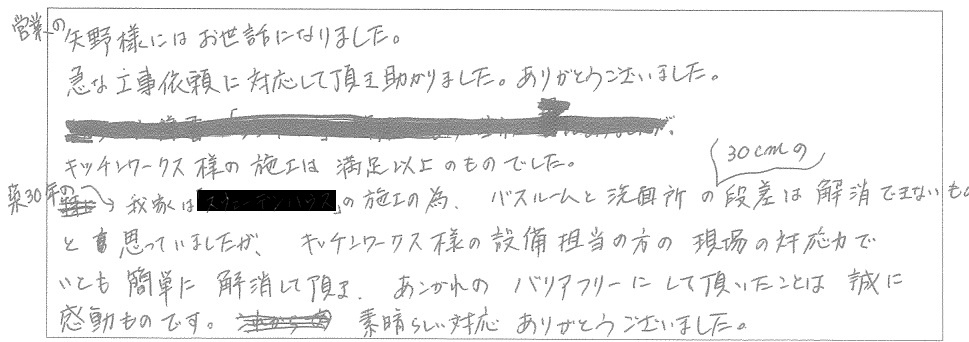 営業の矢野様にはお世話になりました。
急な工事依頼に対応して頂き助かりました。ありがとうございました。
キッチンワークス様の施工は満足以上のものでした。
築30年の我家は「」の施工の為、バスルームと洗面所の30cmの段差は解消できないもの
と思っていましたが、キッチンワークス様の設備担当の方の現場の対応力で
いとも簡単に解消して頂き、あこがれのバリアフリーにして頂いたことは誠に
感動ものです。素晴らしい対応ありがとうございました。